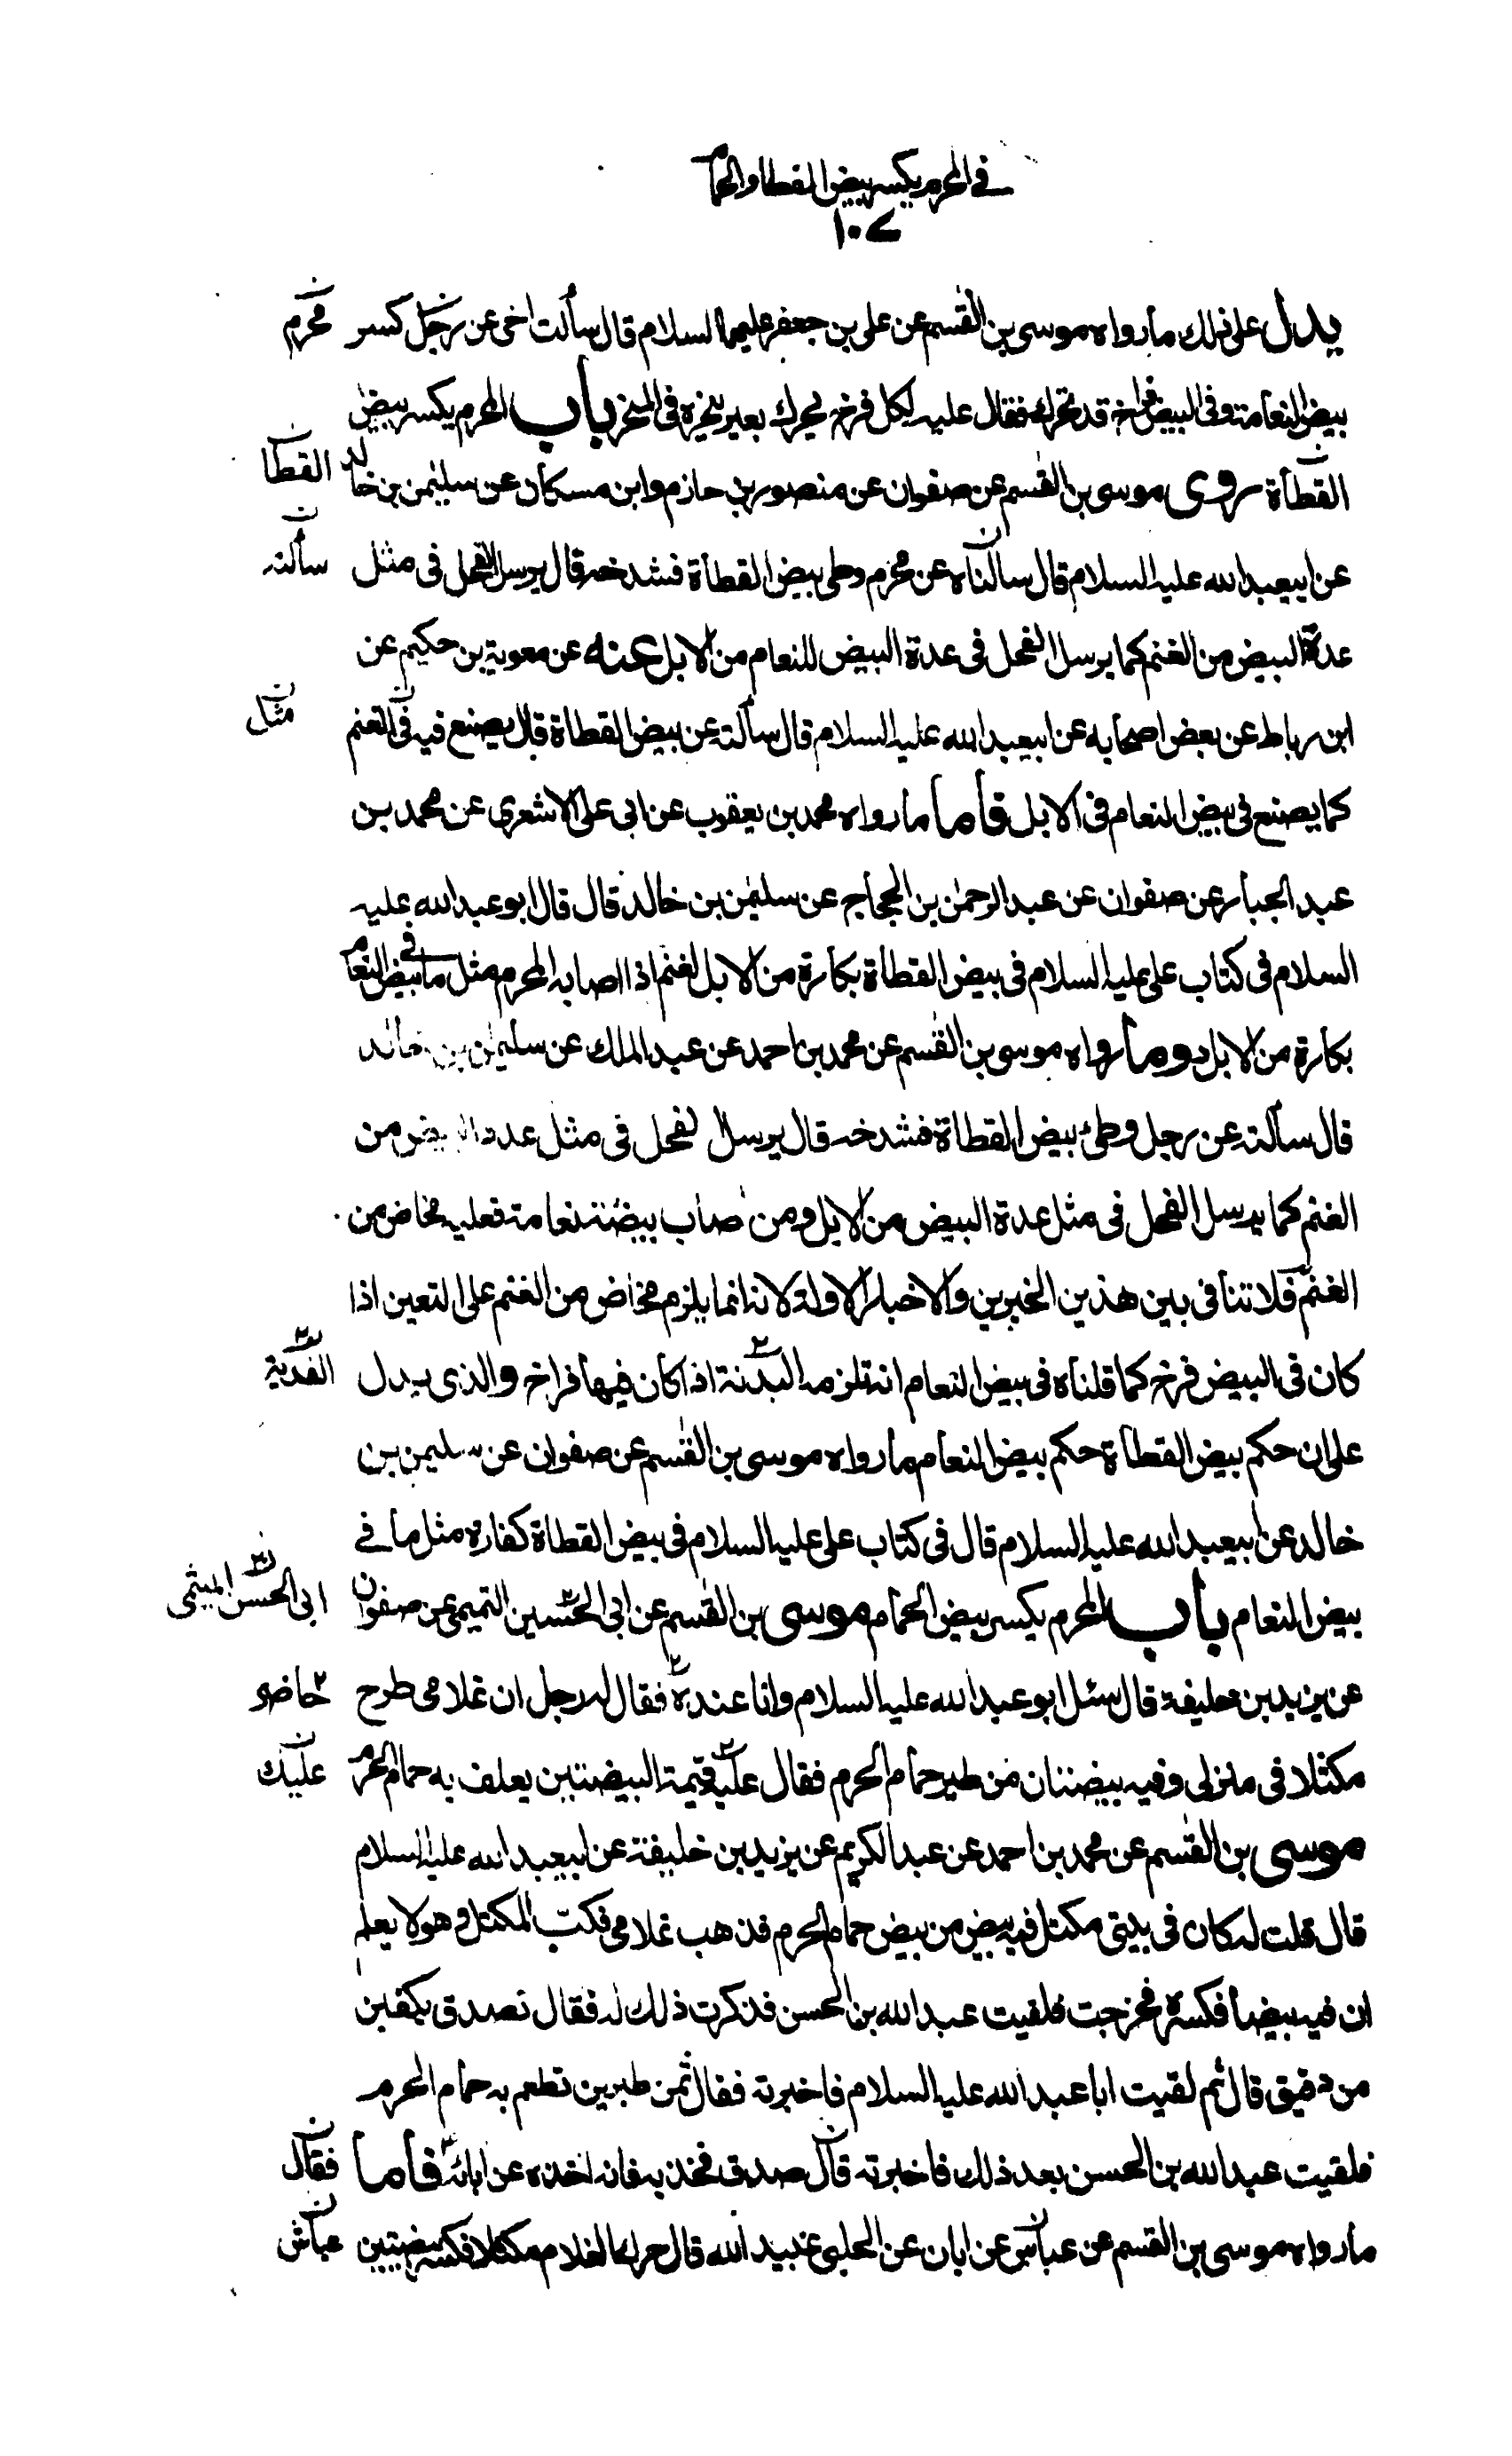 في المحرم يكسر بيض القطا والحمام
١٠٧
يدل على ذلك ما رواه موسى بن القسم عن على بن جعفر عليهما السلام قال سألت اخى عن رجل كسر محرم
بيض النعامة وفى البيض فراخ قد تحرك فقال عليه لكل فرخ تحرك بعير ينحره فى المنحر باب المحرم يكسر بيض
القطاة روى موسى بن القسم عن صفوان عن منصور بن حازم وابن مسكان عن سليمن بن خالد القطا
عن ابيعبد الله عليه السلام قال سالناه عن محرم وطى بيض القطاة فشدخه قال يرسل الفحل فى مثل سألته
عدة البيض من الغنم كما يرسل الفحل فى عدة البيض للنعام من الابل عنه عن معوية بن حكيم عن
ابن رباط عن بعض اصحابه عن ابيعبد الله عليه السلام قال سألته عن بيض القطاة قال يصنع فيه فى الغنم مثل
كما يصنع فى بيض النعام فى الابل فأما ما رواه محمد بن يعقوب عن ابى على الاشعرى عن محمد بن
عبد الجبار عن صفوان عن عبد الرحمن بن الحجاج عن سليمن بن خالد قال قال ابو عبد الله عليه
السلام فى كتاب على عليه السلام فى بيض القطاة بكارة من الغنم اذا اصابه المحرم مثل ما فى بيض النعام
بكارة من الابل وما رواه موسى بن القسم عن محمد بن احمد عن عبد الملك عن سليمن بن خالد
قال سألته عن رجل وطئ بيض القطاة فشدخه قال يرسل الفحل فى مثل عدة البيض من
الغنم كما يرسل الفحل فى مثل عدة البيض من الابل ومن اصاب بيضة نعامة فعليه مخاض من
الغنم فلا تنافى بين هذين الخبرين والاخبار الاولة لانه انما يلزم مخاض من الغنم على التعين اذا
كان فى البيض فرخ كما قلناه فى بيض النعام انه تلزمه البدنة اذا كان فيها فراخ والذى يدل الفدية
على ان حكم بيض القطاة حكم بيض النعام ما رواه موسى بن القسم عن صفوان عن سليمن بن
خالد عن ابيعبد الله عليه السلام قال فى كتاب على عليه السلام فى بيض القطاة كفارة مثل ما في
بيض النعام باب المحرم يكسر بيض الحمام موسى بن القسم عن ابى الحسين التميمى عن صفوان ابى الحسن الميثمى
عن يزيد بن خليفة قال سئل ابو عبد الله عليه السلام وانا عنده فقال له رجل ان غلامى طرح حاضر
مكتلا فى منزلى وفيه بيضتان من طير حمام الحرم فقال عليه قيمة البيضتين يعلف به حمام الحرم عليك
موسى بن القسم عن محمد بن احمد عن عبد الكريم عن يزيد بن خليفة عن ابيعبد الله عليه السلام
قال قلت له كان فى بيتى مكتل فيه بيض من بيض حمام الحرم فذهب غلامى فكبّ المكتل وهو لا يعلم
ان فيه بيضا فكسره فخرجت فلقيت عبد الله بن الحسن فذكرت ذلك له فقال تصدق بكفين
من دقيق قال ثم لقيت ابا عبد الله عليه السلام فاخبرته فقال ثمن طيرين تطعم به حمام الحرم
فلقيت عبد الله بن الحسن بعد ذلك فاخبرته قال صدق فخذ به فانه اخذه عن ابائه فأما فقال
ما رواه موسى بن القسم عن عباس عن ابان عن الحلبى عبيد الله قال حرك الغلام مكتلا فكسر بيضتين عباس